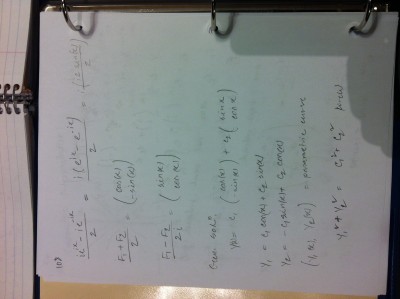 10)
ie^ix - ie^-ix / 2 = i(e^ix - e^-ix) / 2 = (i2 sin(x)) / 2
F1 + F2 / 2 = ( cos(x) -sin(x) )
F1 - F2 / 2i = ( sin(x) cos(x) )
Gen. sol^n
y(x) = c1 ( cos(x) -sin(x) ) + c2 ( sin x cos x )
y1 = c1 cos(x) + c2 sin(x)
y2 = -c1 sin(x) + c2 cos(x)
(y1(x), y2(x)) = parametric curve
y1^2 + y2^2 = c1^2 + c2^2